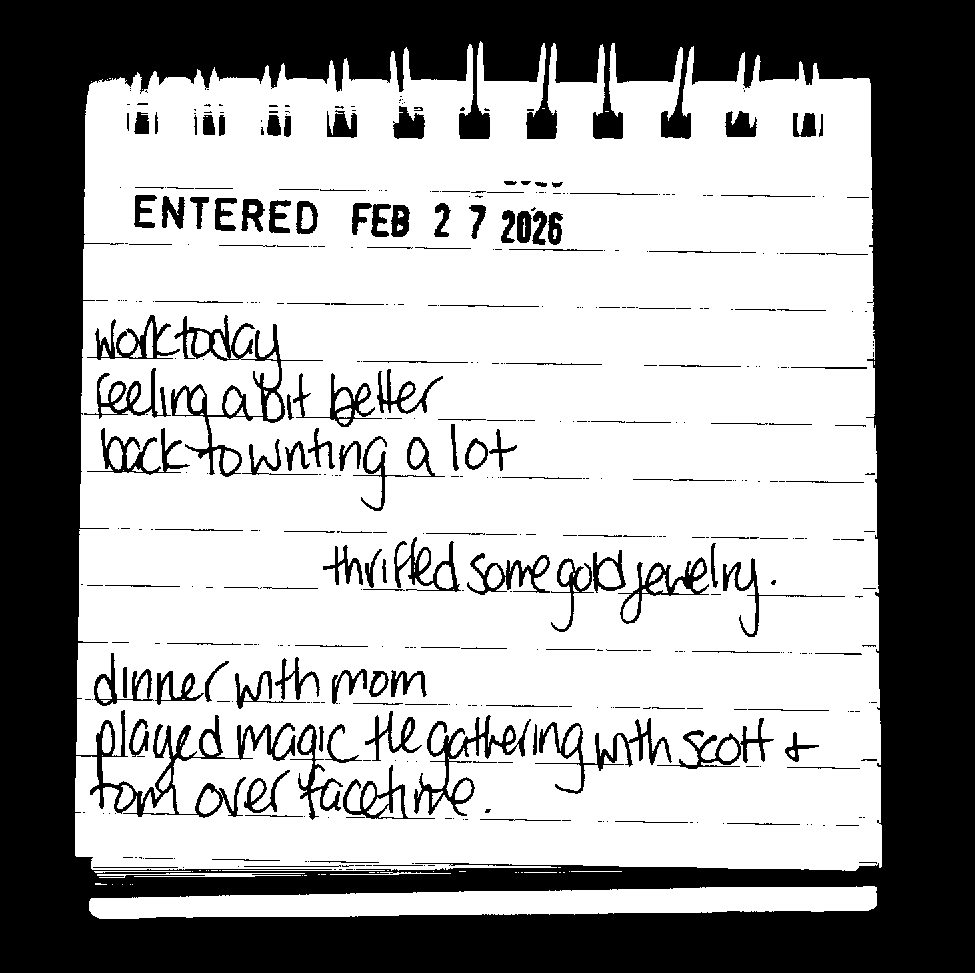 ENTERED FEB 27 2026
work today
feeling a bit better
back to writing a lot
thrifted some gold jewelry.
dinner with mom
played magic the gathering with scott +
tom over facetime.